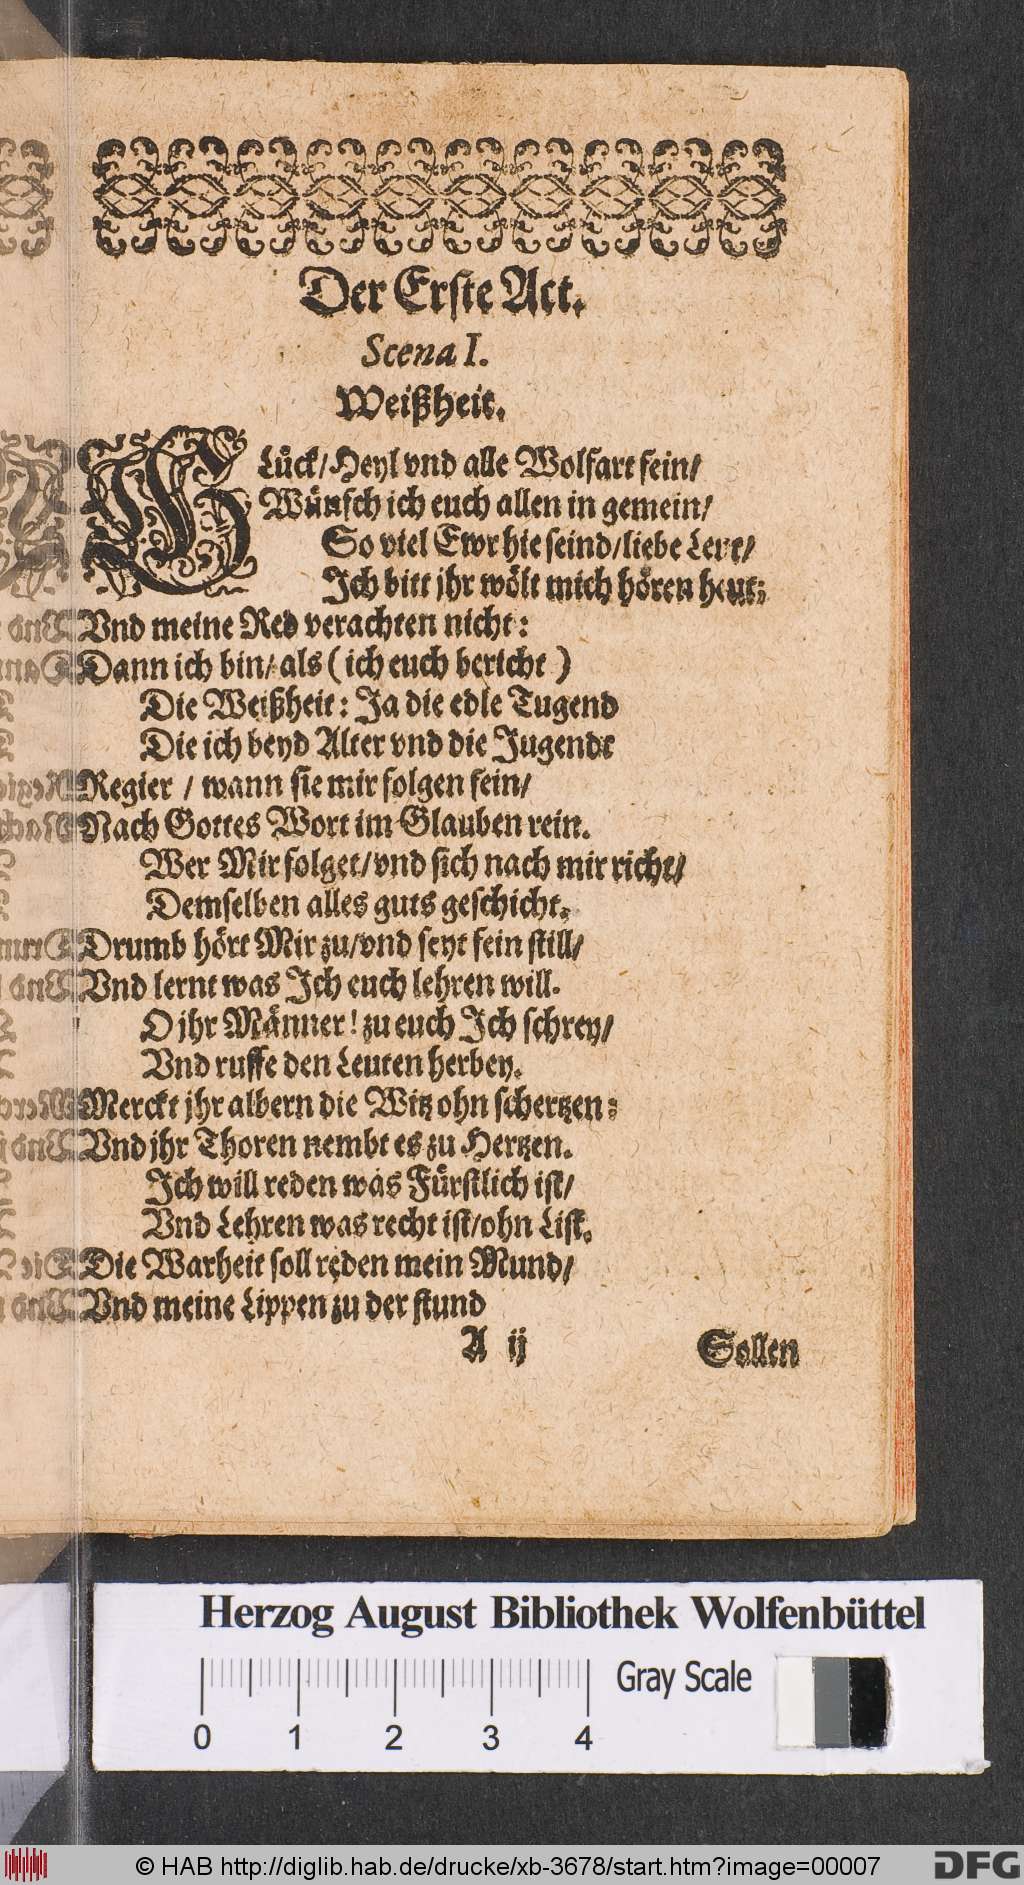 Der Erste Act.
Scena I.
Weißheit.
GLuͤck/ Heyl vnd alle Wolfart fein/
Wuͤnsch ich euch allen in gemein/
So viel Ewr hie seind/ liebe Leut/
Ich bitt jhr woͤlt mich hoͤren heut:
Vnd meine Red verachten nicht:
Dann ich bin/ als (ich euch bericht)
Die Weißheit: Ja die edle Tugend
Die ich beyd Alter vnd die Jugendt
Regier / wann sie mir folgen fein/
Nach Gottes Wort im Glauben rein.
Wer Mir folget/ vnd sich nach mir richt/
Demselben alles guts geschicht.
Drumb hoͤrt Mir zu/ vnd seyt fein still/
Vnd lernt was Ich euch lehren will.
O jhr Maͤnner! zu euch Ich schrey/
Vnd ruffe den Leuten herbey.
Merckt jhr albern die Witz ohn schertzen:
Vnd jhr Thoren nembt es zu Hertzen.
Ich will reden was Fuͤrstlich ist/
Vnd Lehren was recht ist/ ohn List.
Die Warheit soll reden mein Mund/
Vnd meine Lippen zu der stund
A ij Sollen
Herzog August Bibliothek Wolfenbüttel
0 1 2 3 4 Gray Scale
© HAB http://diglib.hab.de/drucke/xb-3678/start.htm?image=00007 DFG